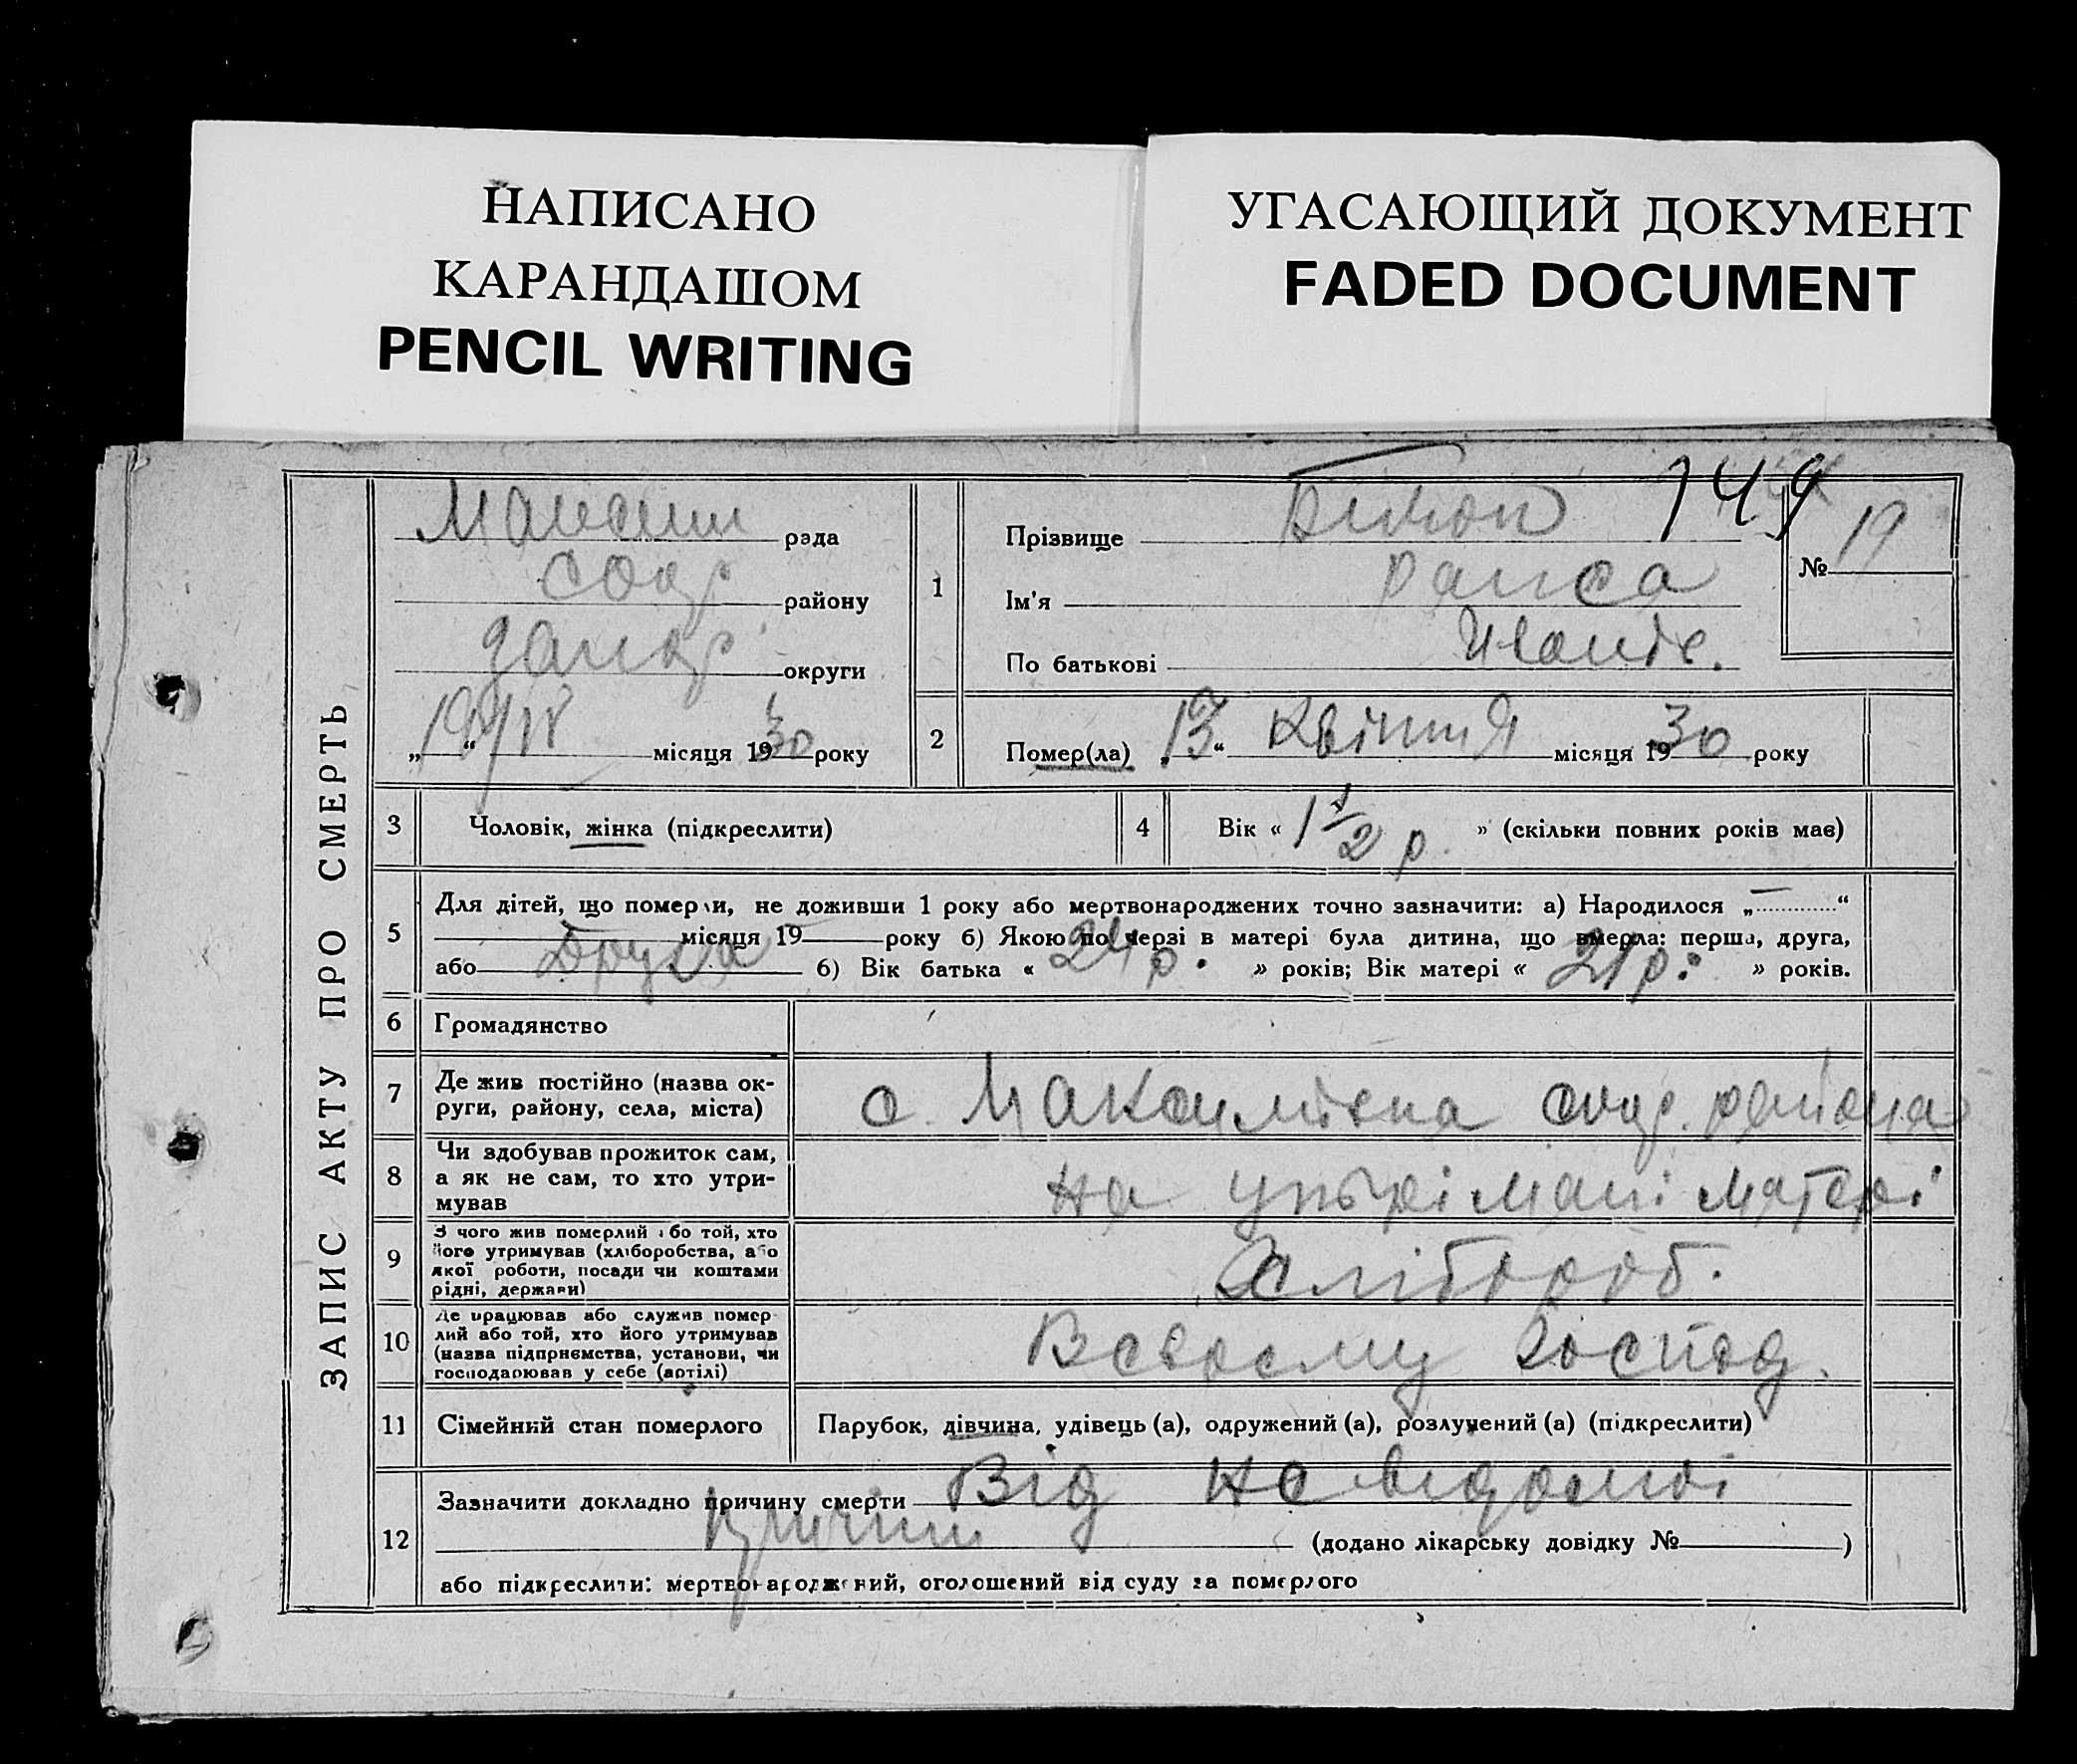 НАПИСАНО
КАРАНДАШОМ
PENCIL WRITING
УГАСАЮЩИЙ ДОКУМЕНТ
FADED DOCUMENT
ЗАПИС АКТУ ПРО СМЕРТЬ
рада
району
округи
„19“ IV місяця 1930 року
1
Прізвище 149
Ім'я Раиса
По батькові
№ 19
2
Помер(ла) „13“ Квітня місяця 1930 року
3 Чоловік, жінка (підкреслити)
4 Вік « 1 1/2 р. » (скільки повних років має)
5 Для дітей, що померли, не доживши 1 року або мертвонароджених точно зазначити: а) Народилося „—“
місяця 19 року б) Якою по черзі в матері була дитина, що вмерла: перша, друга,
або Друга б) Вік батька « 24 р. » років; Вік матері « 21 р. » років.
6 Громадянство
7 Де жив постійно (назва округи, району, села, міста) с. района
8 Чи здобував прожиток сам, а як не сам, то хто утримував на матері
9 З чого жив померлий або той, хто його утримував (хліборобства, або якої роботи, посади чи коштами рідні, держави) Хлібороб.
10 Де працював або служив померлий або той, хто його утримував (назва підприємства, установи, чи господарював у себе (артілі) В своєму господ.
11 Сімейний стан померлого Парубок, дівчина, удівець (а), одружений (а), розлучений (а) (підкреслити)
12 Зазначити докладно причину смерти Від не відомої
причини (додано лікарську довідку № )
або підкреслити: мертвонароджений, оголошений від суду за померлого